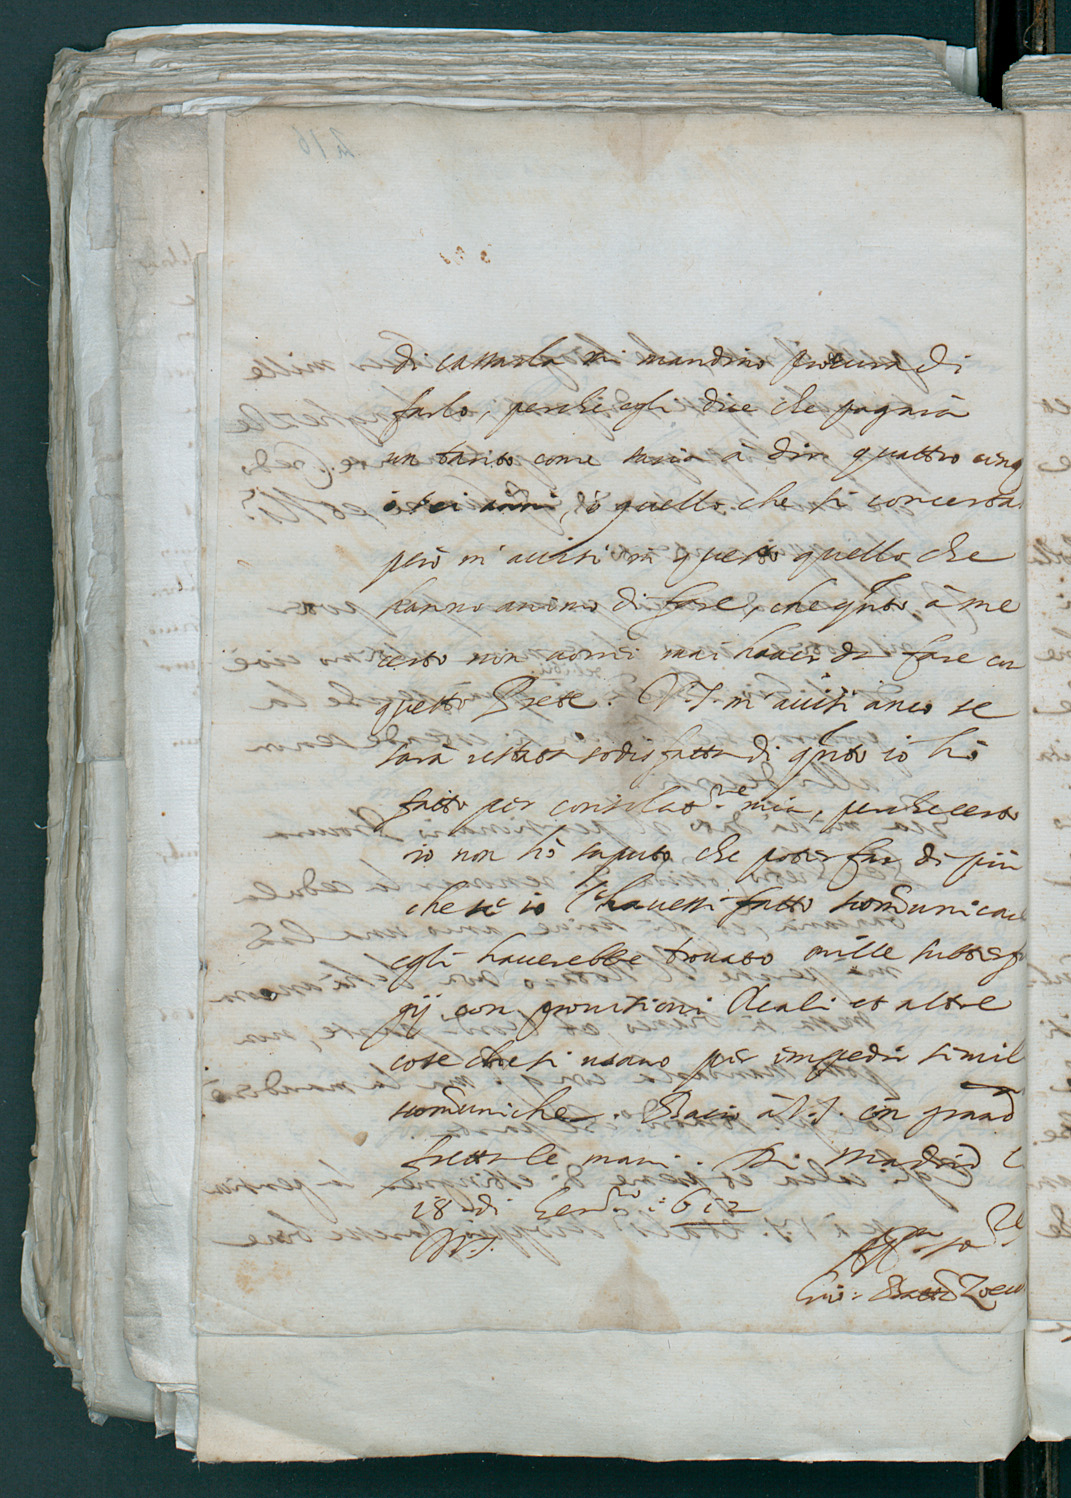 di cassarla mi mandino procura di
farlo, perche egli dice che pagarà
un tanto come saria à dire quattro cinq
ò sei anni, ò quello che si concerta
però m'auisi in questo quello che
hanno animo di fare, che q.to à me
certo non uorrei mai hauer da fare cu
questo Prete. V.S. m'auisi anco se
sarà restata sodisfatta di q.to io hò
fatto per consolat.ne mia, perche certo
io non hò saputo che poter far di più
che se io l'hauessi fatto scomunicar
egli hauerebbe trouato mille sutterf
gij con prouisioni Reali et altre
cose che si usano per impedir simil
scomuniche. Bacio à V.S. con grand
fretta le mani. Di Madrid
18 di Gen.ro 1612
D. V.S.
Aff.mo
Gio: Batt.a